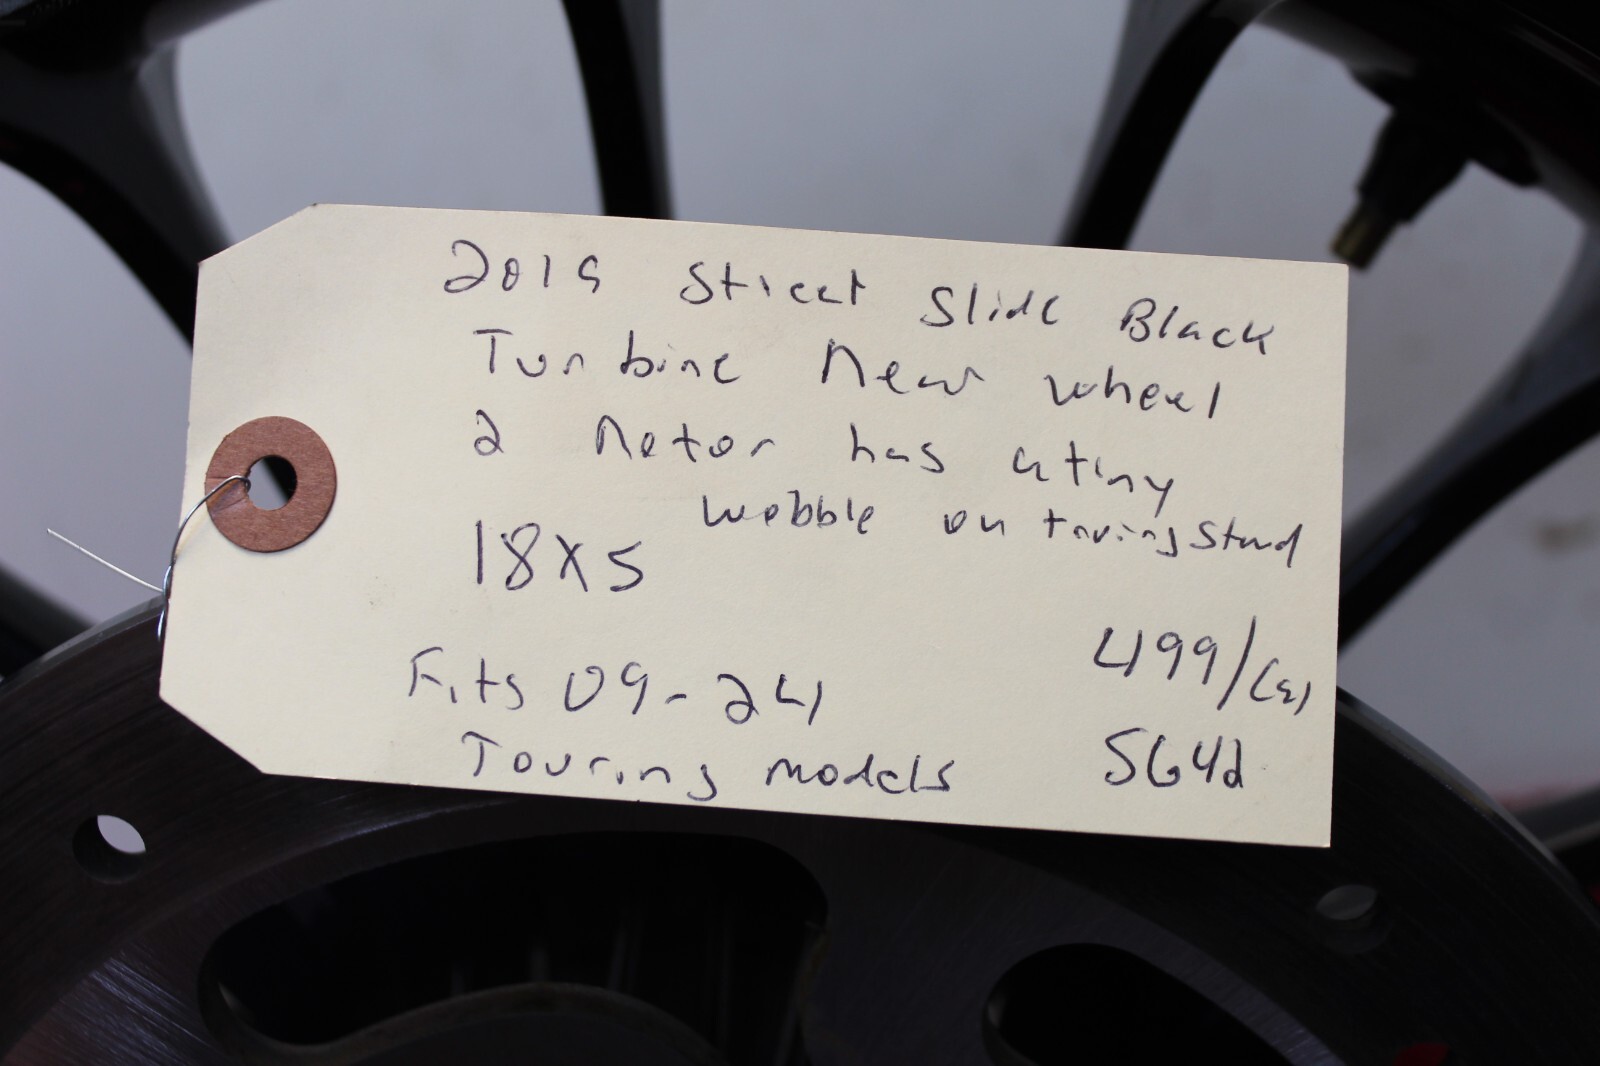 2019 Street Slide Black
Turbine Rear wheel
2 Rotor has a tiny
wobble on truing stand
18x5
499/(a)
Fits 09-24
Touring models
5642